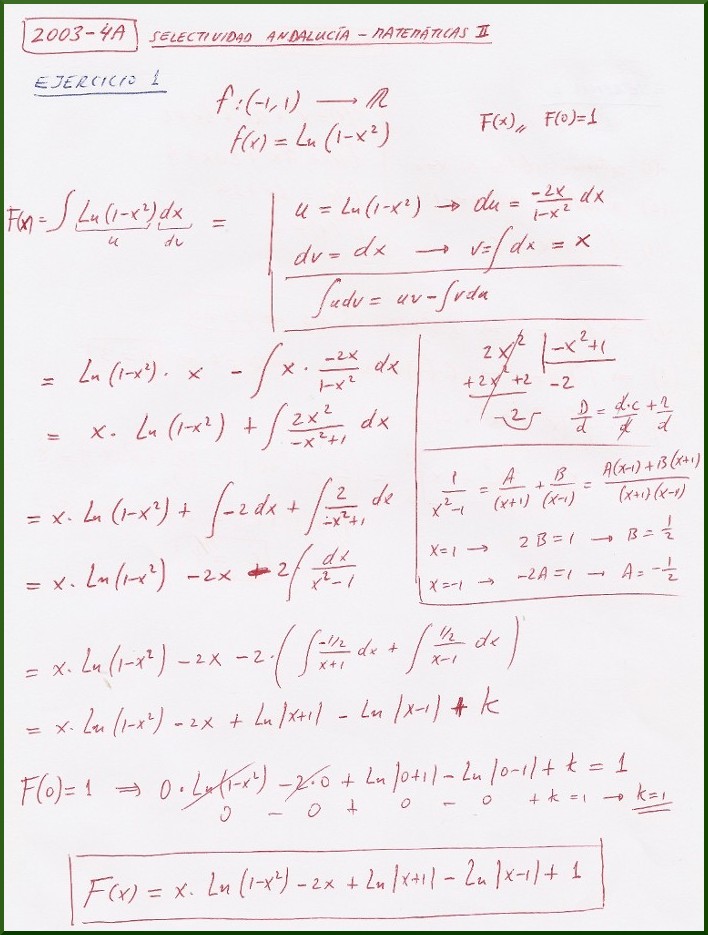 2003-4A SELECTIVIDAD ANDALUCÍA - MATEMÁTICAS II
EJERCICIO 1
f:(-1,1) → ℝ
f(x) = Ln(1-x²)
F(x),, F(0)=1
F(x) = ∫ Ln(1-x²) dx =
u dv
u = Ln(1-x²) → du = -2x/(1-x²) dx
dv = dx → v = ∫dx = x
∫udv = uv - ∫vdu
= Ln(1-x²) · x - ∫ x · -2x/(1-x²) dx
= x · Ln(1-x²) + ∫ 2x²/(-x²+1) dx
= x · Ln(1-x²) + ∫ -2dx + ∫ 2/(-x²+1) dx
= x · Ln(1-x²) - 2x - 2∫ dx/(x²-1)
2x² | -x²+1
+2x²+2 -2
2
D/d = d·c/d + r/d
1/(x²-1) = A/(x+1) + B/(x-1) = (A(x-1)+B(x+1))/((x+1)(x-1))
x=1 → 2B=1 → B=1/2
x=-1 → -2A=1 → A=-1/2
= x · Ln(1-x²) - 2x - 2·(∫ (-1/2)/(x+1) dx + ∫ (1/2)/(x-1) dx)
= x · Ln(1-x²) - 2x + Ln|x+1| - Ln|x-1| + k
F(0)=1 ⇒ 0·Ln(1-x²) - 2·0 + Ln|0+1| - Ln|0-1| + k = 1
0 - 0 + 0 - 0 + k = 1 → k=1
F(x) = x · Ln(1-x²) - 2x + Ln|x+1| - Ln|x-1| + 1